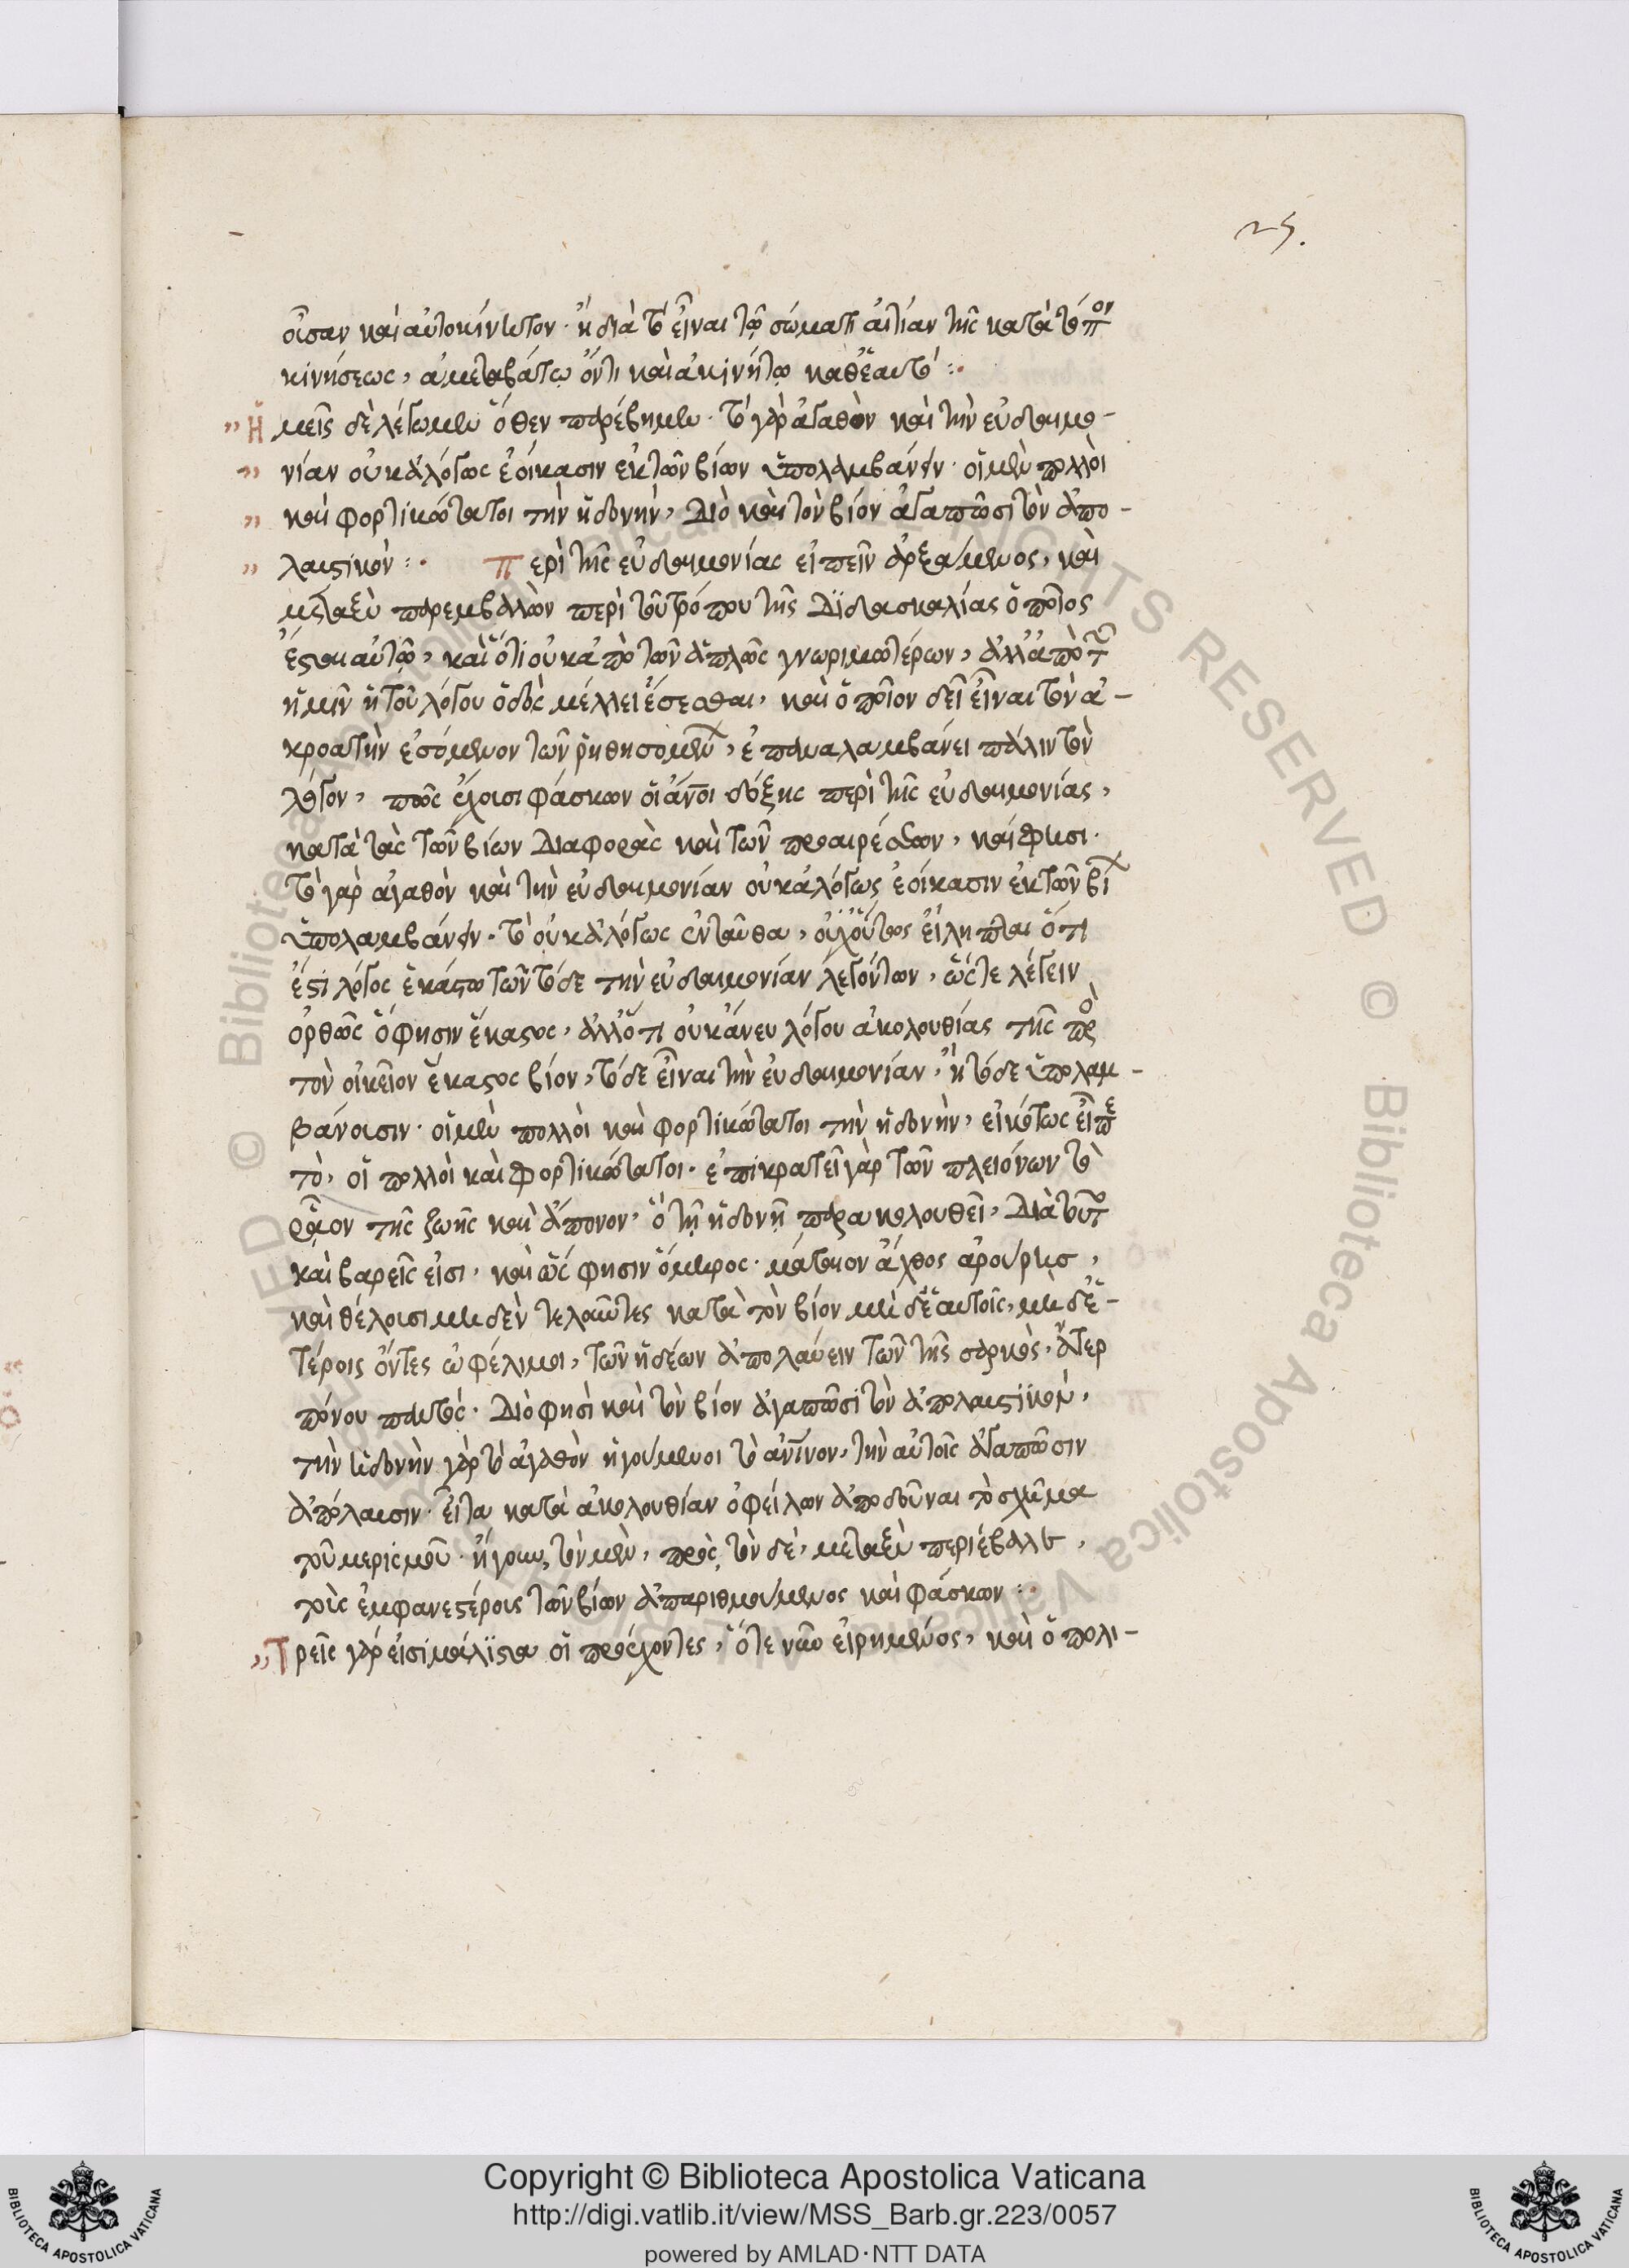 25.
οὖσαν καὶ αὐτοκίνητον· ἢ διὰ τὸ εἶναι τῷ σώματι αἰτίαν τῆς κατὰ τόπον
κινήσεως, ἀμεταβάτῳ ὄντι καὶ ἀκινήτῳ καθ' ἑαυτό :·
" Ἡμεῖς δὲ λέγωμεν ὅθεν παρέβημεν· τὸ γὰρ ἀγαθὸν καὶ τὴν εὐδαιμο-
" νίαν οὐκ ἀλόγως ἐοίκασιν ἐκ τῶν βίων ὑπολαμβάνειν· οἱ μὲν πολλοὶ
" καὶ φορτικώτατοι τὴν ἡδονήν, Διὸ καὶ τὸν βίον ἀγαπῶσι τὸν ἀπο-
" λαυστικόν :· Περὶ τῆς εὐδαιμονίας εἰπεῖν ἀρξάμενος, καὶ
μεταξὺ παρεμβαλὼν περὶ τοῦ τρόπου τῆς Διδασκαλίας ὁποῖος
ἔσται αὐτῷ, καὶ ὅτι οὐκ ἀπὸ τῶν ἁπλῶς γνωριμωτέρων, ἀλλ' ἀπὸ τῶν
ἡμῖν ἡ τοῦ λόγου ὁδὸς μέλλει ἔσεσθαι, καὶ ὁποῖον δεῖ εἶναι τὸν ἀ-
κροατὴν ἐσόμενον τῶν ῥηθησομένων, ἐπαναλαμβάνει πάλιν τὸν
λόγον, πῶς ἔχουσι φάσκων οἱ ἄνοι δόξης περὶ τῆς εὐδαιμονίας,
κατὰ τὰς τῶν βίων Διαφορὰς καὶ τῶν προαιρέσεων, καί φησι·
Τὸ γὰρ ἀγαθὸν καὶ τὴν εὐδαιμονίαν οὐκ ἀλόγως ἐοίκασιν ἐκ τῶν βίων
ὑπολαμβάνειν. τὸ οὐκ ἀλόγως ἐνταῦθα, οὐχ οὕτως εἴληπται ὅτι
ἔστι λόγος ἑκάστῳ τῶν τόδε τὴν εὐδαιμονίαν λεγόντων, ὥστε λέγειν
ὀρθῶς ὅ φησιν ἕκαστος, ἀλλ' ὅτι οὐκ ἄνευ λόγου ἀκολουθίας τῆς πρὸς
τὸν οἰκεῖον ἕκαστος βίον, τόδε εἶναι τὴν εὐδαιμονίαν, ἢ τόδε ὑπολαμ-
βάνουσιν· οἱ μὲν πολλοὶ καὶ φορτικώτατοι τὴν ἡδονήν, εἰκότως εἶπε
τό, οἱ πολλοὶ καὶ φορτικώτατοι· ἐπικρατεῖ γὰρ τῶν πλειόνων τὸ
ῥᾷον τῆς ζωῆς καὶ ἄπονον, ὃ τῇ ἡδονῇ παρακολουθεῖ, Διὰ τοῦτο
καὶ βαρεῖς εἰσι, καὶ ὥς φησιν ὅμηρος· μάταιον ἄχθος ἀρούρης,
καὶ θέλουσι μηδὲν τελοῦντες κατὰ τὸν βίον μὴ δ' ἑαυτοῖς, μὴ δ' ἑ-
τέροις ὄντες ὠφέλιμοι, τῶν ἡδέων ἀπολαύειν τῶν τῆς σαρκός, ἄτερ
πόνου παντός. Διό φησι καὶ τὸν βίον ἀγαπῶσι τὸν ἀπολαυστικόν,
τὴν ἡδονὴν γὰρ τὸ ἀγαθὸν ἡγούμενοι τὸ ἀνινον, τὴν αὐτοῖς ἀγαπῶσιν
ἀπόλαυσιν. εἶτα κατὰ ἀκολουθίαν ὀφείλων ἀποδοῦναι τὸ σχῆμα
τοῦ μερισμοῦ· ἤγουν, τὸν μὲν, πρὸς τὸν δέ, μεταξὺ περιέβαλε,
τοῖς ἐμφανεστέροις τῶν βίων ἀπαριθμούμενος καὶ φάσκων :·
" Τρεῖς γάρ εἰσι μάλιστα οἱ προέχοντες, ὅ τε νῦν εἰρημένος, καὶ ὁ πολι-
Copyright © Biblioteca Apostolica Vaticana
http://digi.vatlib.it/view/MSS_Barb.gr.223/0057
powered by AMLAD·NTT DATA
BIBLIOTECA APOSTOLICA VATICANA
BIBLIOTECA APOSTOLICA VATICANA